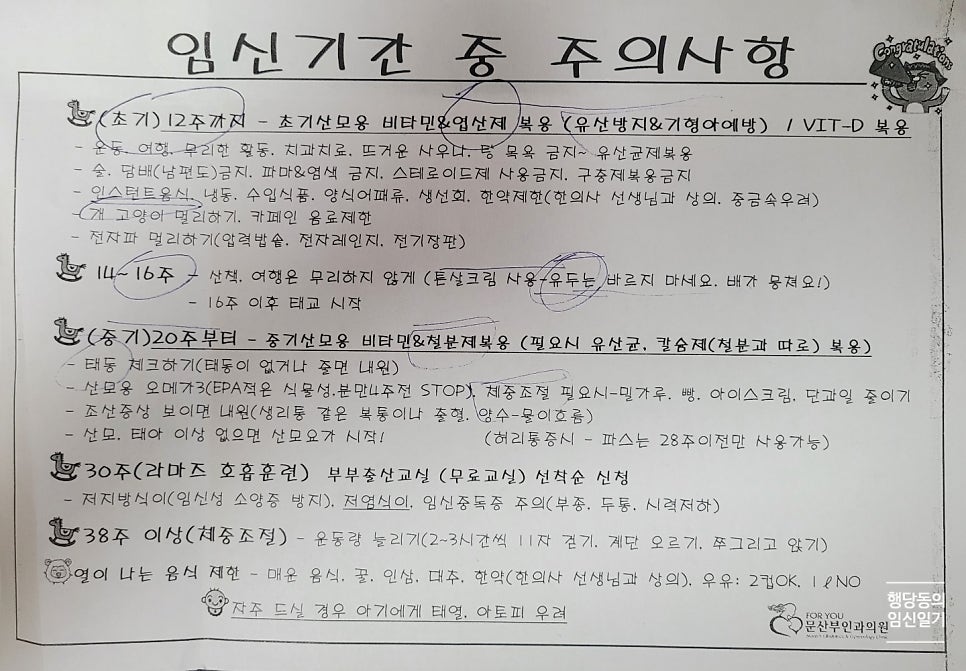 임신기간 중 주의사항
Congratulations
(초기)12주까지 - 초기산모용 비타민&엽산제 복용 (유산방지&기형아예방) / VIT-D 복용
- 운동, 여행, 무리한 활동, 치과치료, 뜨거운 사우나, 탕 목욕 금지~ 유산균제복용
- 술, 담배(남편도)금지, 파마&염색 금지, 스테로이드제 사용금지, 구충제복용금지
- 인스턴트음식, 냉동, 수입식품, 양식어패류, 생선회, 한약제한(한의사 선생님과 상의, 중금속우려)
- 개, 고양이 멀리하기, 카페인 음료제한
- 전자파 멀리하기(압력밥솥, 전자레인지, 전기장판)
14~16주 - 산책, 여행은 무리하지 않게 (튼살크림 사용-유두는 바르지 마세요, 배가 뭉쳐요!)
- 16주 이후 태교 시작
(중기)20주부터 - 중기산모용 비타민&철분제복용 (필요시 유산균, 칼슘제(철분과 따로) 복용)
- 태동 체크하기(태동이 없거나 줄면 내원)
- 산모용 오메가3(EPA적은 식물성,분만4주전 STOP), 체중조절 필요시-밀가루, 빵, 아이스크림, 단과일 줄이기
- 조산증상 보이면 내원(생리통 같은 복통이나 출혈, 양수-물이흐름)
- 산모, 태아 이상 없으면 산모요가 시작! (허리통증시 - 파스는 28주이전만 사용가능)
30주(라마즈 호흡훈련) 부부출산교실 (무료교실) 선착순 신청
- 저지방식이(임신성 소양증 방지), 저염식이, 임신중독증 주의(부종, 두통, 시력저하)
38주 이상(체중조절) - 운동량 늘리기(2~3시간씩 11자 걷기, 계단 오르기, 쭈그리고 앉기)
열이 나는 음식 제한 - 매운 음식, 꿀, 인삼, 대추, 한약(한의사 선생님과 상의), 우유: 2컵OK, 1ℓNO
자주 드실 경우 아기에게 태열, 아토피 우려
FOR YOU
문산부인과의원
행당동의
임신일기